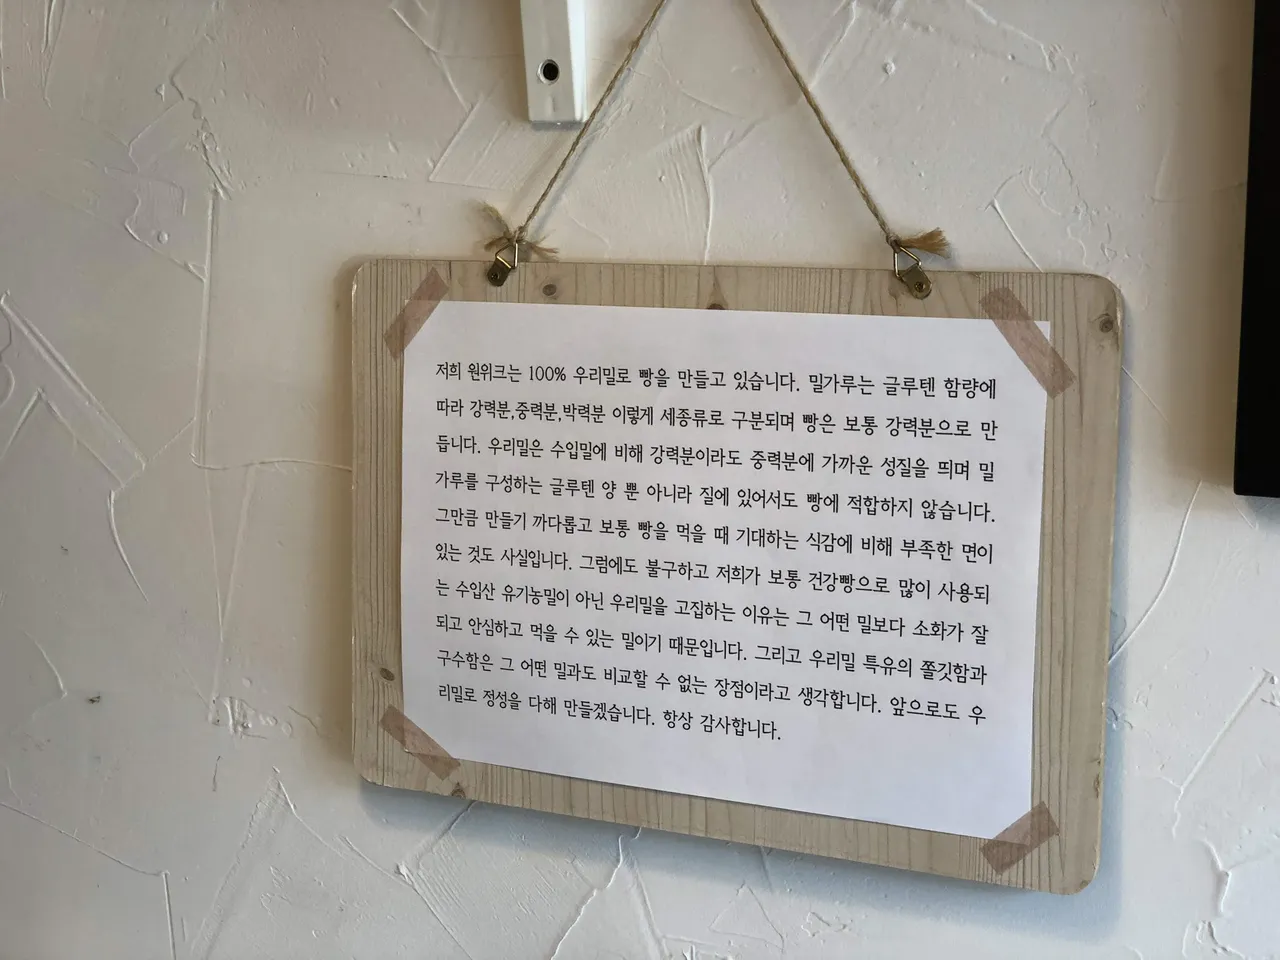 저희 원위크는 100% 우리밀로 빵을 만들고 있습니다. 밀가루는 글루텐 함량에
따라 강력분,중력분,박력분 이렇게 세종류로 구분되며 빵은 보통 강력분으로 만
듭니다. 우리밀은 수입밀에 비해 강력분이라도 중력분에 가까운 성질을 띄며 밀
가루를 구성하는 글루텐 양 뿐 아니라 질에 있어서도 빵에 적합하지 않습니다.
그만큼 만들기 까다롭고 보통 빵을 먹을 때 기대하는 식감에 비해 부족한 면이
있는 것도 사실입니다. 그럼에도 불구하고 저희가 보통 건강빵으로 많이 사용되
는 수입산 유기농밀이 아닌 우리밀을 고집하는 이유는 그 어떤 밀보다 소화가 잘
되고 안심하고 먹을 수 있는 밀이기 때문입니다. 그리고 우리밀 특유의 쫄깃함과
구수함은 그 어떤 밀과도 비교할 수 없는 장점이라고 생각합니다. 앞으로도 우
리밀로 정성을 다해 만들겠습니다. 항상 감사합니다.